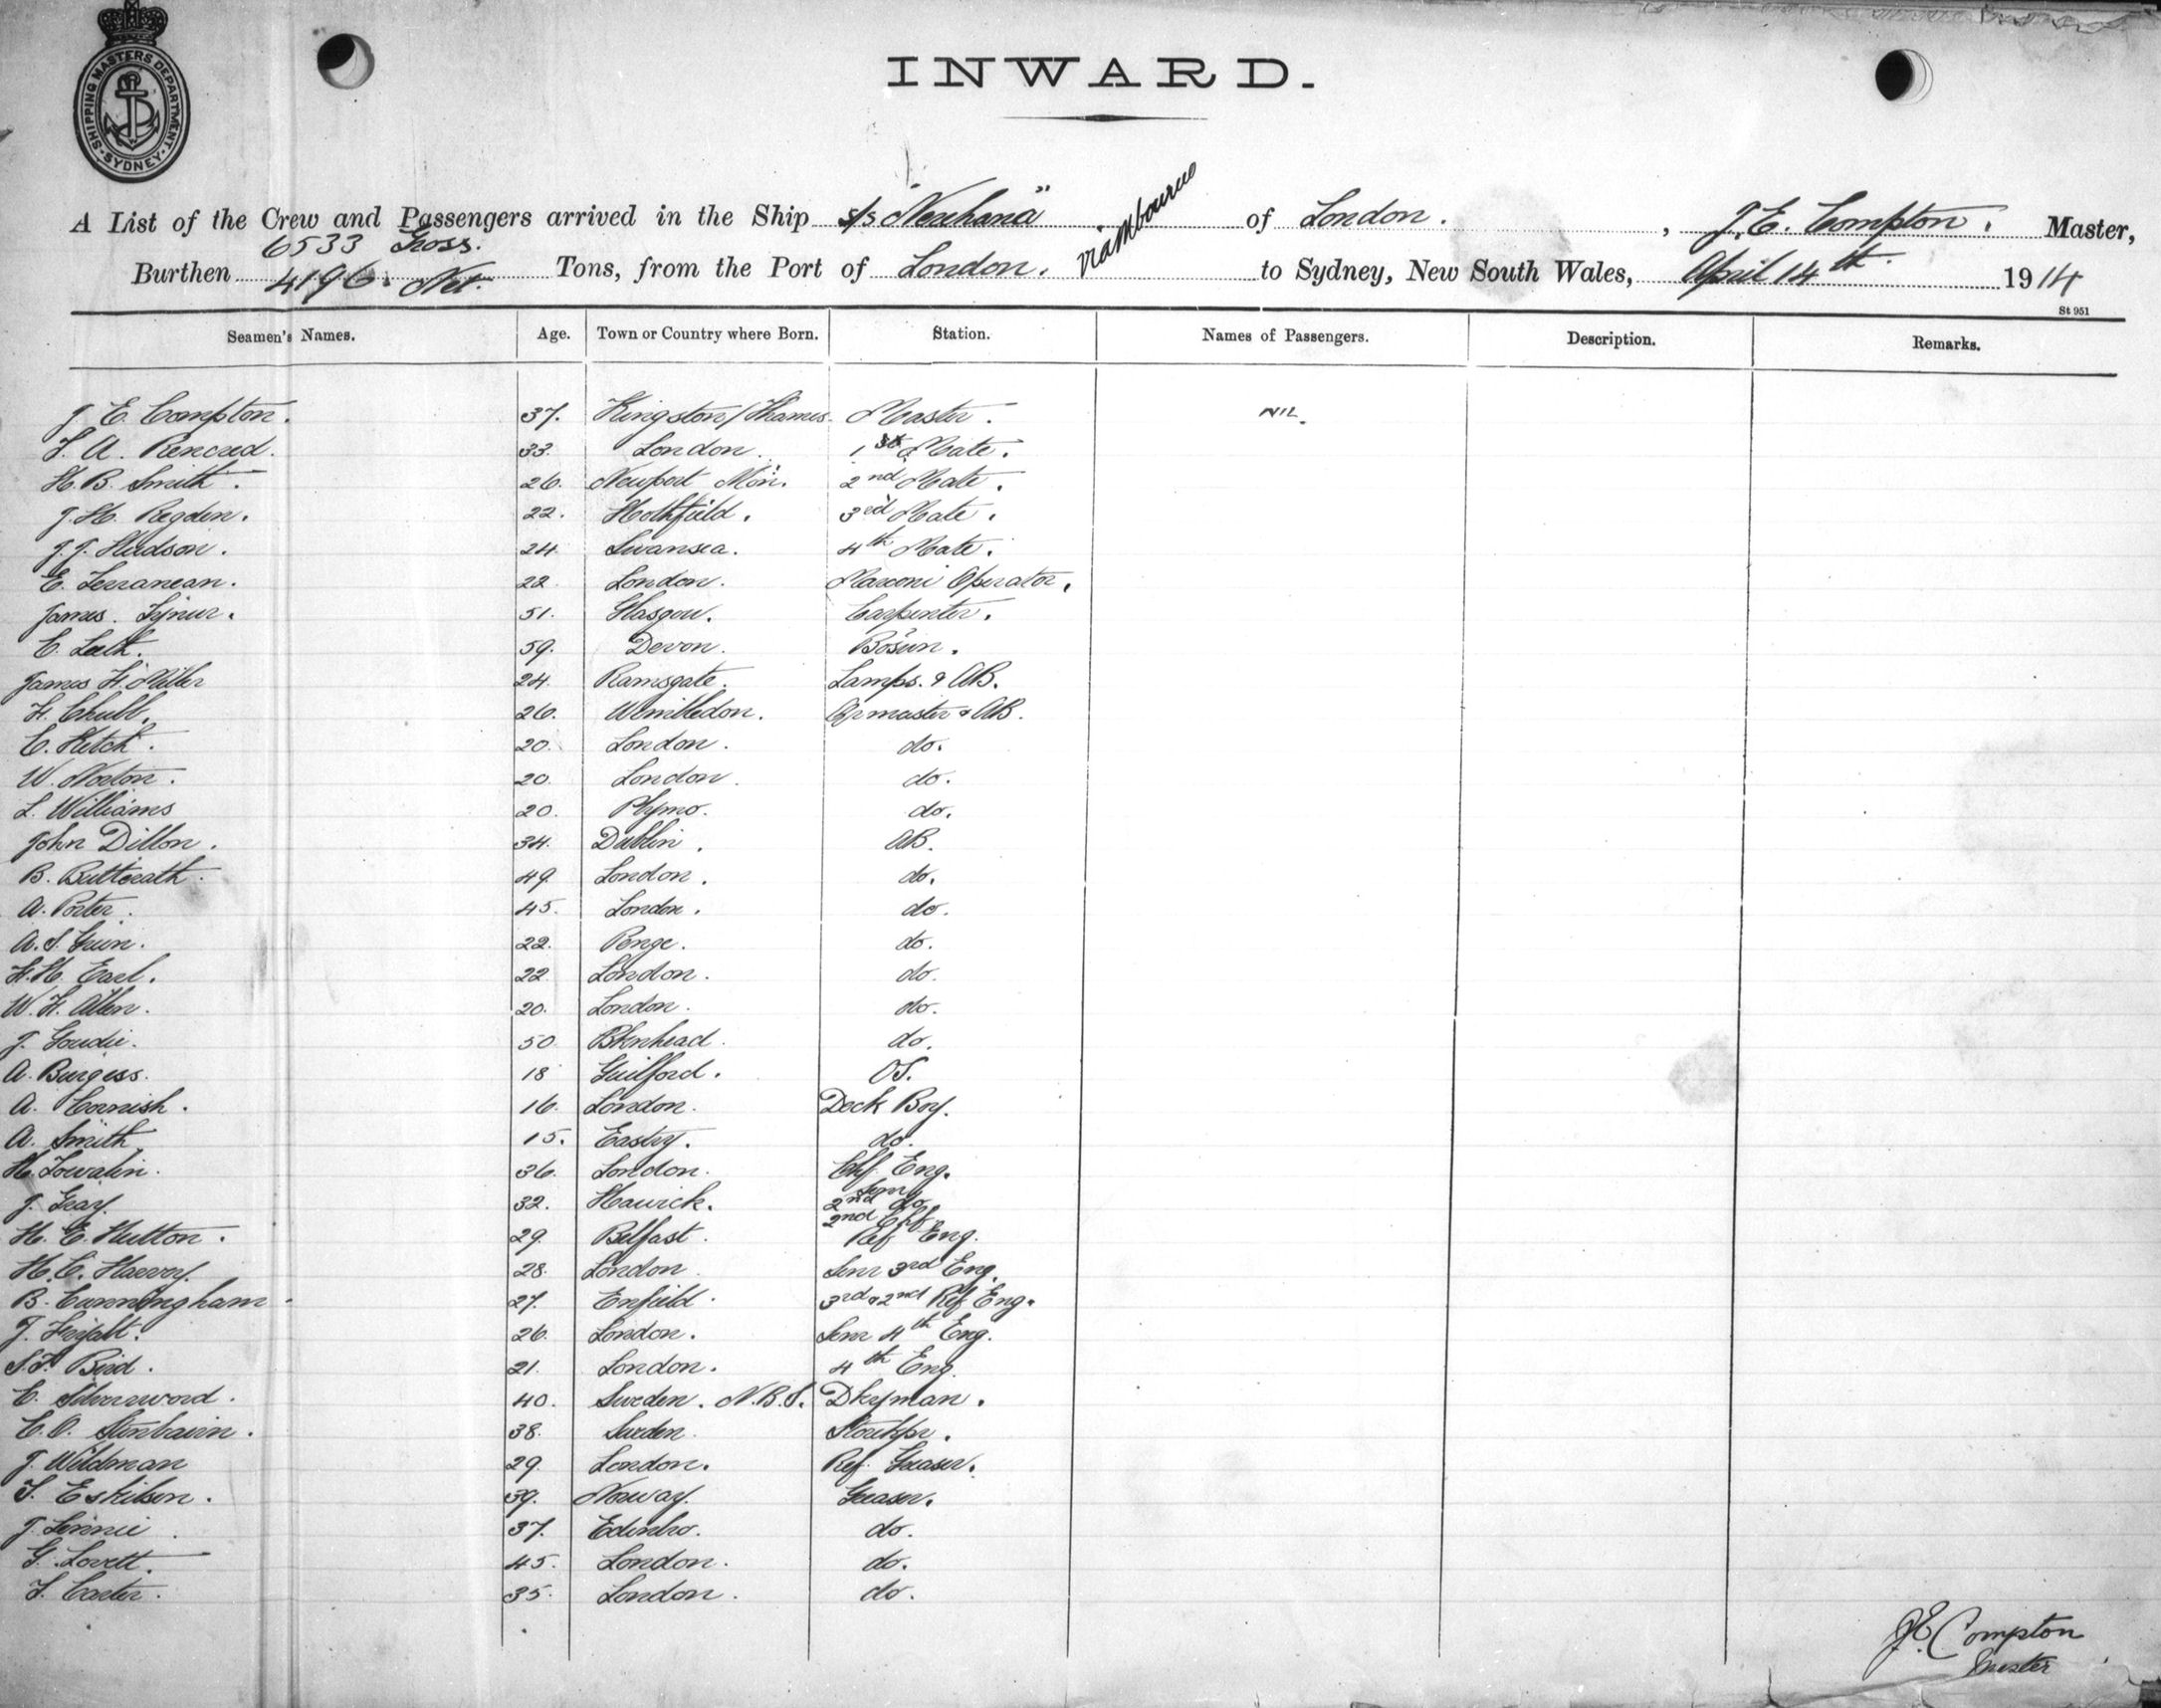 SHIPPING MASTERS DEPARTMENT · SYDNEY ·
INWARD.
A List of the Crew and Passengers arrived in the Ship s/s "Neuhana" of London. , J. E. Compton. Master,
via Mbourne
6533 Gross.
Burthen 4196. Net. Tons, from the Port of London. to Sydney, New South Wales, April 14th. 1914
St 951
Seamen's Names. Age. Town or Country where Born. Station. Names of Passengers. Description. Remarks.
J. E. Compton. 37. Kingston/Thames. Master. NIL.
A. 33. London. 1st Mate.
H. B. Smith. 26. Newport Mon. 2nd Mate.
J. H. Regden. 22. Hothfield. 3rd Mate.
J. J. Hudson. 24. Swansea. 4th Mate.
E. 22. London. Marconi Operator.
James. 51. Glasgow. Carpenter.
C. 59. Devon. Bosun.
James H. Miller 24. Ramsgate. Lamps. & AB.
H. Chubb. 26. Wimbledon. Qrmaster & AB.
C. Ketch. 20. London. do.
W. Norton. 20. London. do.
L. Williams 20. Plymo. do.
John Dillon. 34. Dublin. AB.
B. Butterath. 49. London. do.
A. Porter. 45. London. do.
A. S. 22. Penge. do.
H. H. Earl. 22. London. do.
W. H. Allen. 20. London. do.
J. Goudie. 50 Bknhead. do.
A. Burgess. 18 Guilford. OS.
A. Cornish. 16. London. Deck Boy.
A. Smith 15. Eastry. do.
H. 36. London. Chf. Eng.
J. Gray. 32. Hawick. Senr 2nd do
H. E. Hutton. 29. Belfast. 2nd & Chf. Ref Eng.
H. C. Harvey. 28. London. Senr 3rd Eng.
B. Cunningham. 27. Enfield. 3rd & 2nd Ref Eng.
J. 26. London. Senr 4th Eng.
S. F. Bird. 21. London. 4th Eng.
C. 40. Sweden. N.B.S. Dkyman.
C. O. 38. Sweden. Storekpr.
J. Wildman 29. London. Ref. Greaser.
S. Eskilson. 39. Norway. Greaser.
J. Rennie. 37. Edinbro. do.
G. Lovett. 45. London. do.
Carter. 35. London. do.
J E Compton
Master